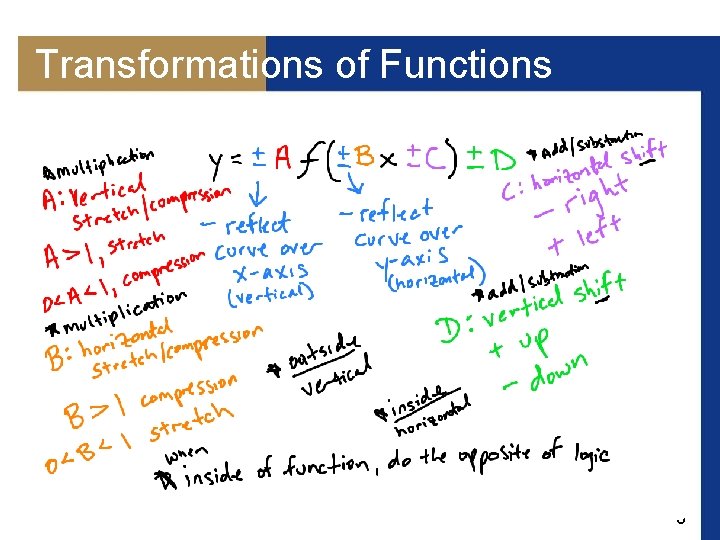 Transformations of Functions
* multiplication
y = ± A f(± B x ± C) ± D
* add/subtraction
A: Vertical
stretch/compression
A > 1, stretch
0 < A < 1, compression
- reflect
curve over
x-axis
(vertical)
- reflect
curve over
y-axis
(horizontal)
C: horizontal shift
- right
+ left
* multiplication
B: horizontal
stretch/compression
B > 1 compression
0 < B < 1 stretch
* outside
vertical
* inside
horizontal
* add/subtraction
D: vertical shift
+ up
- down
when
* inside of function, do the opposite of logic